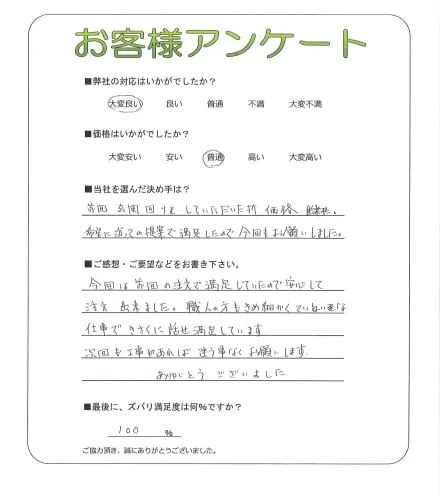 お客様アンケート
■弊社の対応はいかがでしたか？
大変良い 良い 普通 不満 大変不満
■価格はいかがでしたか？
大変安い 安い 普通 高い 大変高い
■当社を選んだ決め手は？
前回 玄関回りをしていただいた折 価格
希望に沿っての提案で満足したので今回もお願いしました。
■ご感想・ご要望などをお書き下さい。
今回は前回の注文で満足していたので安心して
注文 出来ました。職人の方もきめ細かくていねいな
仕事で きさくに話せ満足しています
次回も工事があれば 迷う事なく お願いします.
ありがとう ございました
■最後に、ズバリ満足度は何%ですか？
100 %
ご協力頂き、誠にありがとうございました。